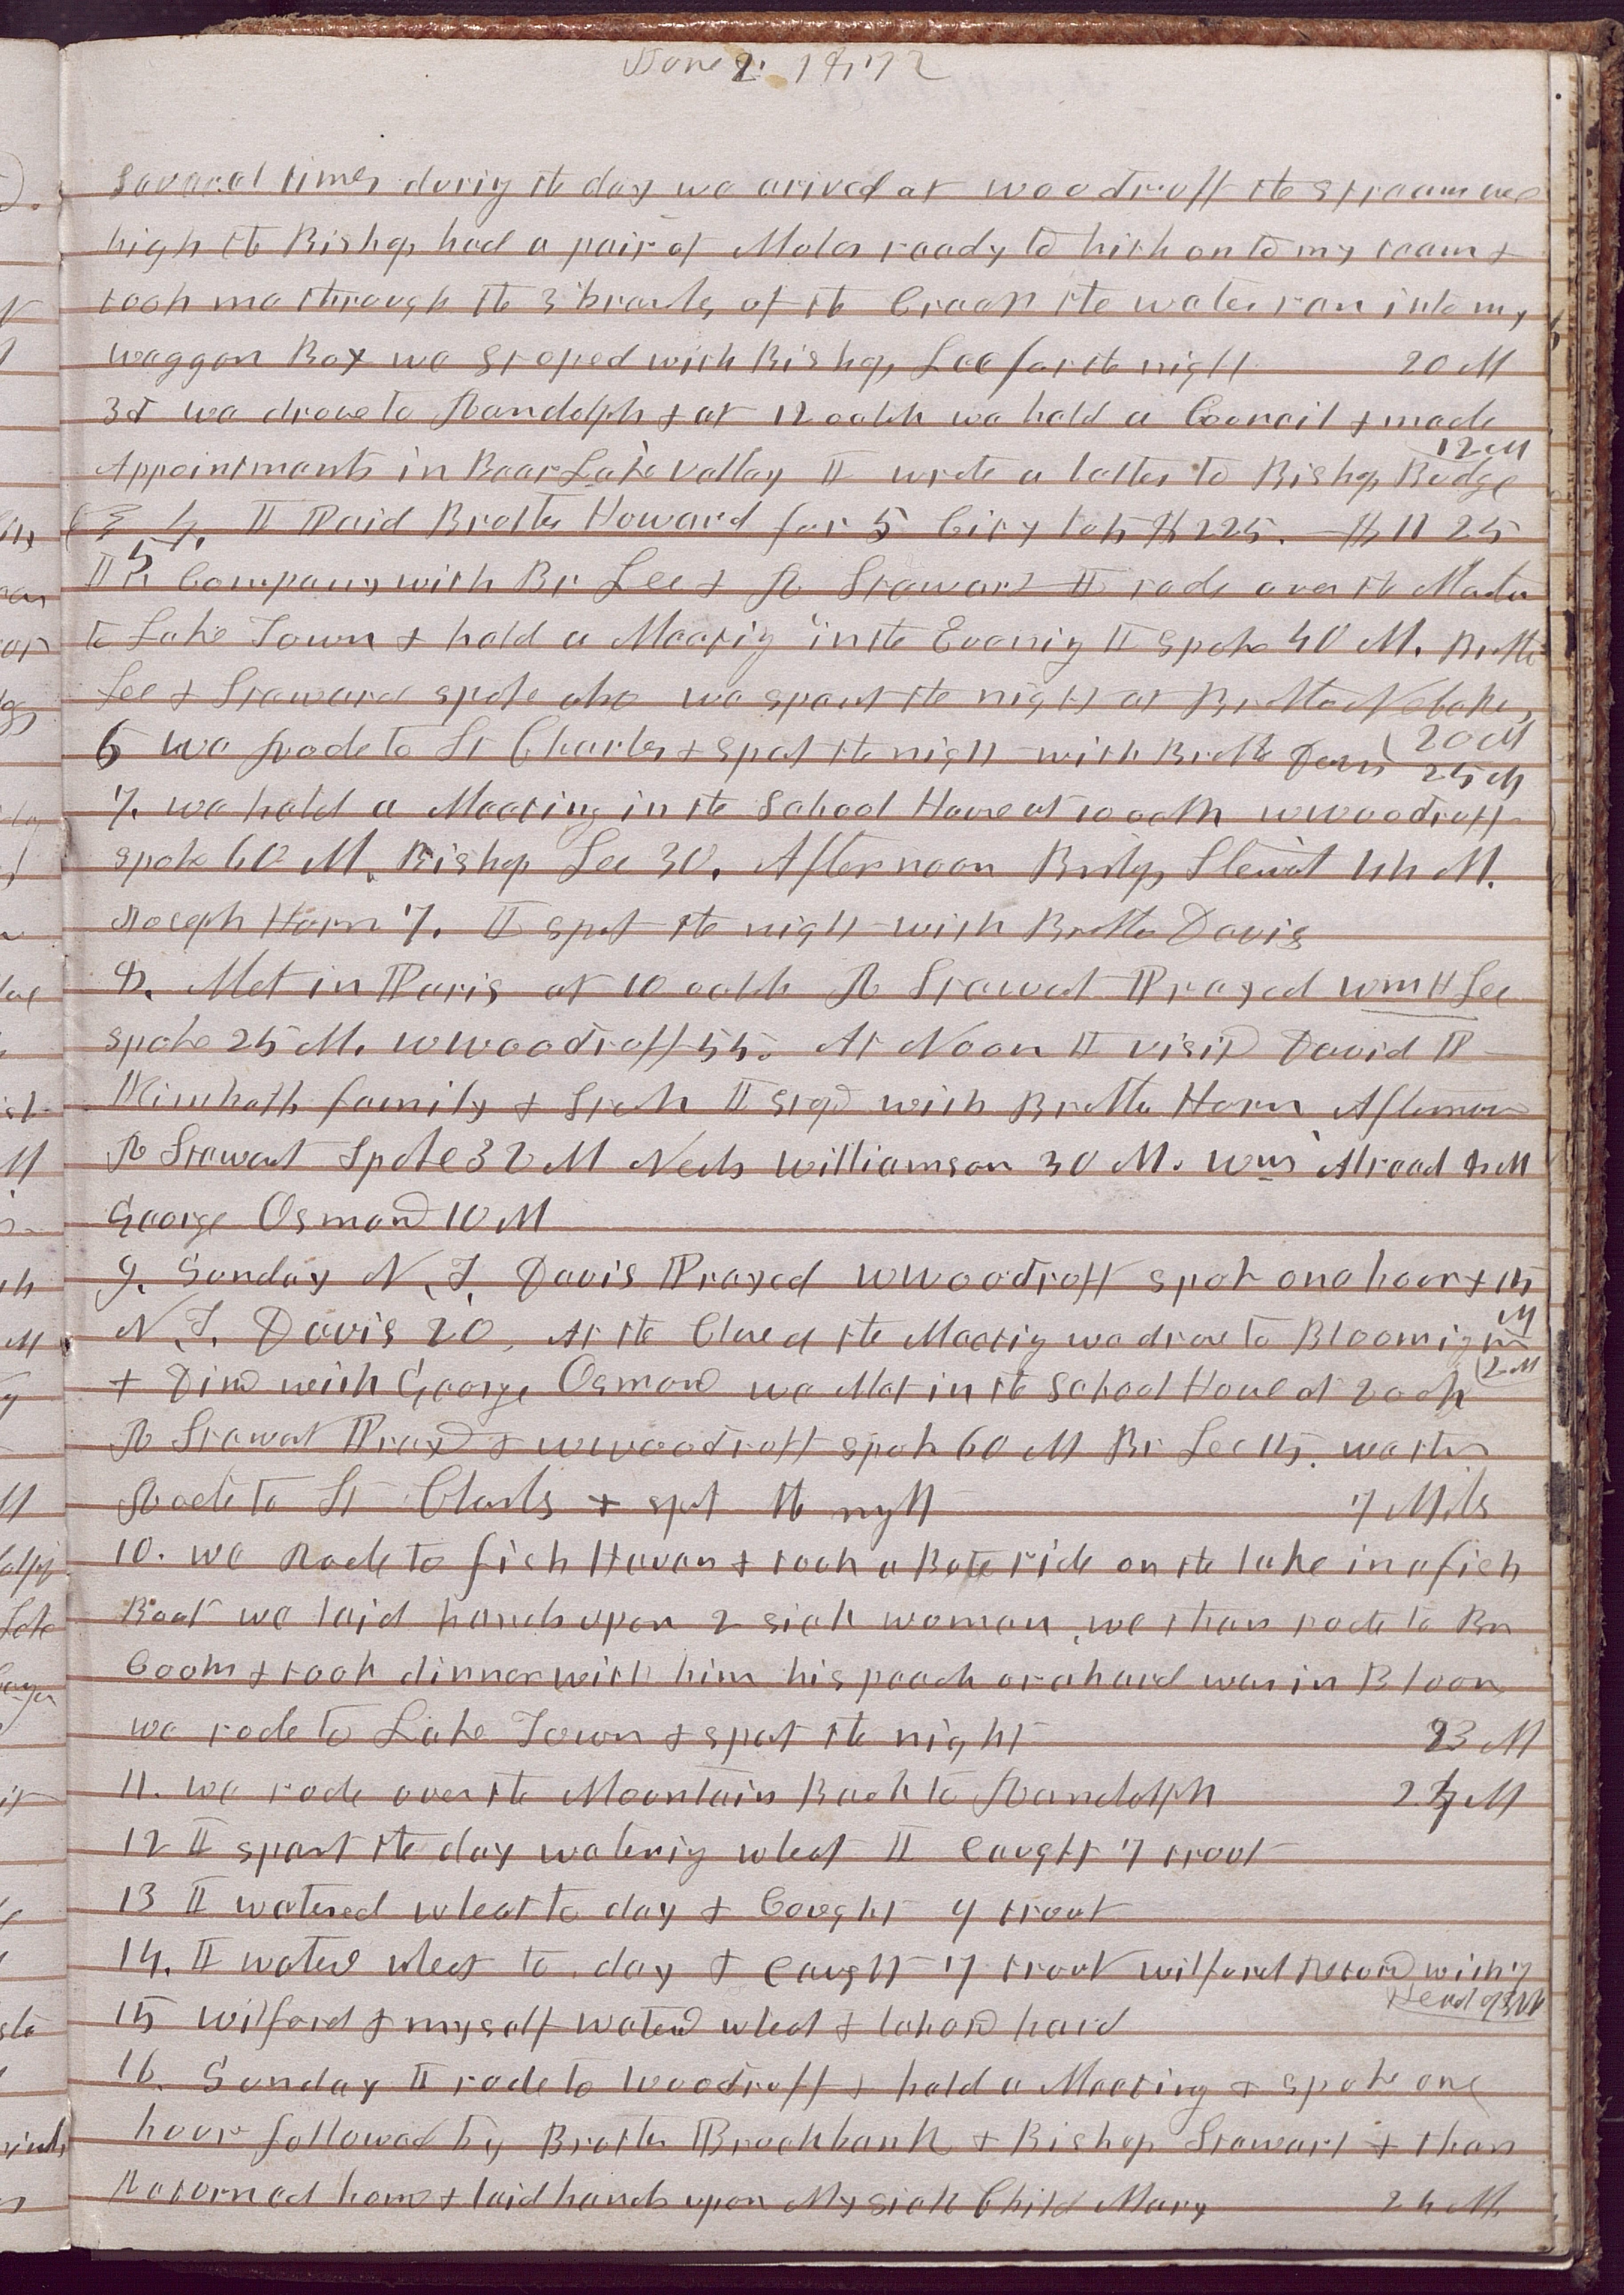 June 2. 1872
Several times during the day we arived at woodruff the stream was
high the Bishop had a pair of Mules ready to hitch on to my team &
took me through the 3 branches of the Creek the water ran into my
waggon Box we stoped with Bishop Lee for the night 20 M
3d we drove to Randolph & at 12 oclok we held a Council & made
12 M
Appointments in Bear Lake valley I wrote a letter to Bishop Budge
4. I Paid Brother Howard for 5 City lots $225. $1125
5 In Company with Br Lee & R Steward I rode over the Mountain
to Lake Town & held a Meeting in the Evening I spoke 40 M. Brother
Lee & Steward spoke also we spent the night at Brother Nebeker,
6 we Rode to St Charles & spent the night with Brother Davis (20 M
25 M
7. we held a Meeting in the School House at 10 oclok W Woodruff
spoke 60 M. Bishop Lee 30. Afternoon Bishop Stewart 44 M.
Joseph Horn 7. I spent the night with Brother Davis
8. Met in Paris at 10 oclok R Steward Prayed Wm H Lee
spoke 25 M. W Woodruff 55. At Noon I visitd David P
Kimball family & sick I stopd with Brother Horn Afternoon
R Stewart Spoke 32 M Neels Williamson 30 M. Wm Alread M
George Osmond 10 M
9. Sunday N. T. Davis Prayed W Woodruff spok one hour & 15
M
N. T. Davis 20. At the Close of the Meeting we drove to Bloomington
(2 M
& Dined with George Osmond we Met in the School House at 2 oclok
R Stewart Prayed & W Woodruff spok 60 M Br Lee 15. we then
Rode to St Charls & spent the night 7 Miles
10. we Rode to fish Haven & took a Bote ride on the lake in a fish
Boat we laid hands upon 2 sick women, we then rode to Br
Cooks & took dinner with him his peach orchard was in Bloom
we rode to Lake Town & spent the night 23 M
11. we rode over the Mountain Back to Randolph 25 M
12 I spent the day watering wheat I Caught 7 trout
13 I watered wheat to day & Cought 4 trout
14. I waterd wheat to day & Caught 7 trout Wilford Returnd with 7
Head of
15 Wilford & myself waterd wheat & labord hard
16. Sunday I rode to Woodruff & held a Meeting & spoke one
hour followed by Brother Brockbank & Bishop Stewart & then
Returned home & laid hands upon My sick Child Mary 24 M.